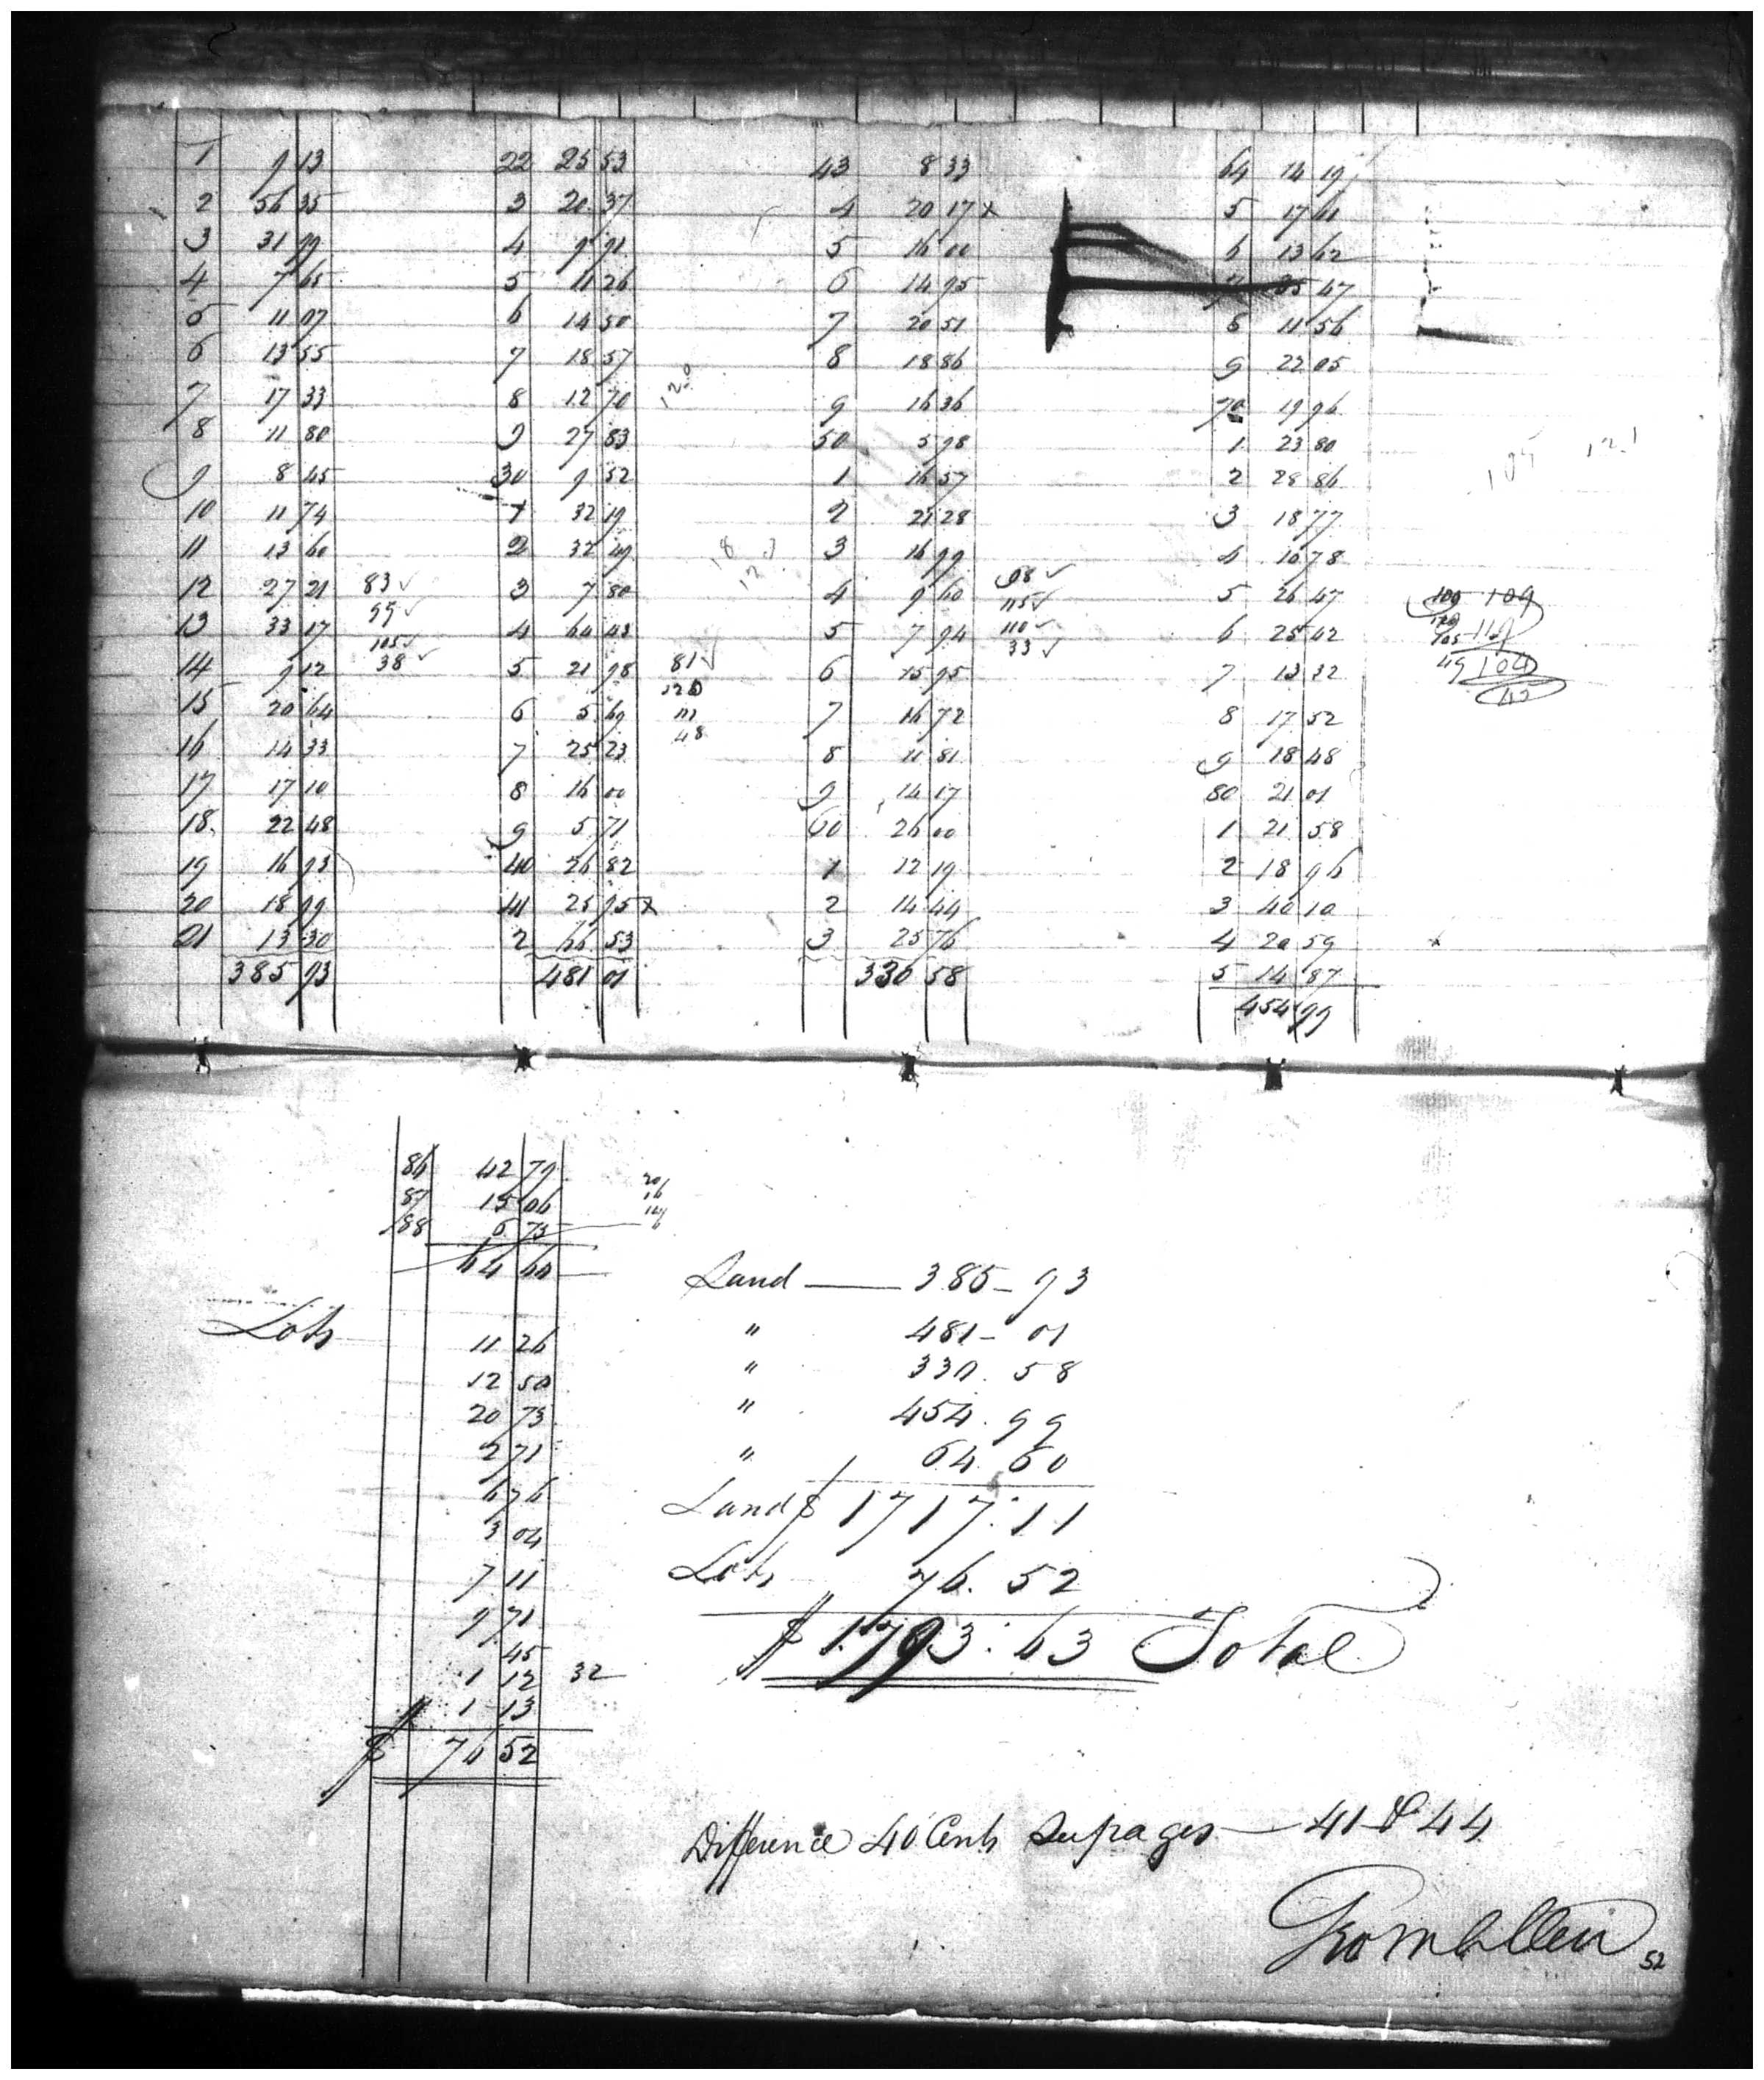 1 9 13 22 25 53 43 8 33 64 14 19
2 56 35 3 20 37 4 20 17 x 5 17 61
3 31 99 4 9 91 5 16 00 6 13 62
4 7 65 5 11 26 6 14 95 7 35 47
5 11 07 6 14 50 7 20 51 8 11 56
6 13 55 7 18 57 8 18 86 9 22 05
7 17 33 8 12 70 120 9 16 36 70 19 96
8 11 80 9 27 83 50 5 98 1 23 80
9 8 45 30 9 52 1 16 57 2 28 86
10 11 74 1 32 19 2 21 28 3 18 77
11 13 60 2 32 49 3 16 99 4 10 78
12 27 21 83 ✓ 3 7 80 4 9 60 98 ✓ 5 26 47 109
99 ✓ 115 ✓
13 33 17 105 ✓ 4 64 43 5 7 94 110 ✓ 6 25 42 119
14 9 12 38 ✓ 5 21 98 81 ✓ 6 15 95 33 ✓ 7 13 32 49 104
15 20 64 6 5 69 120 7 16 72 8 17 52 45
111
16 14 33 7 25 23 48 8 11 81 9 18 48
17 17 10 8 16 00 9 14 17 80 21 01
18 22 48 9 5 71 60 26 00 1 21 58
19 16 93 40 26 82 1 12 19 2 18 96
20 18 99 41 25 95 x 2 14 44 3 40 10
21 13 30 2 66 53 3 25 76 4 20 59 x
385 93 481 01 330 58 5 14 87
454 99
86 42 79
87 15 06
88 6 75
64 60
Lots
11 26
12 50
20 73
2 71
6 76
3 04
7 11
9 71
45
1 12 32
1 13
$ 76 52
Land — 385 - 93
" 481 - 01
" 330. 58
" 454. 99
" 64 60
Land $ 1717.11
Lots 76. 52
$ 1793.63 Total
Difference 40 Cents See pages — 41 & 44
52